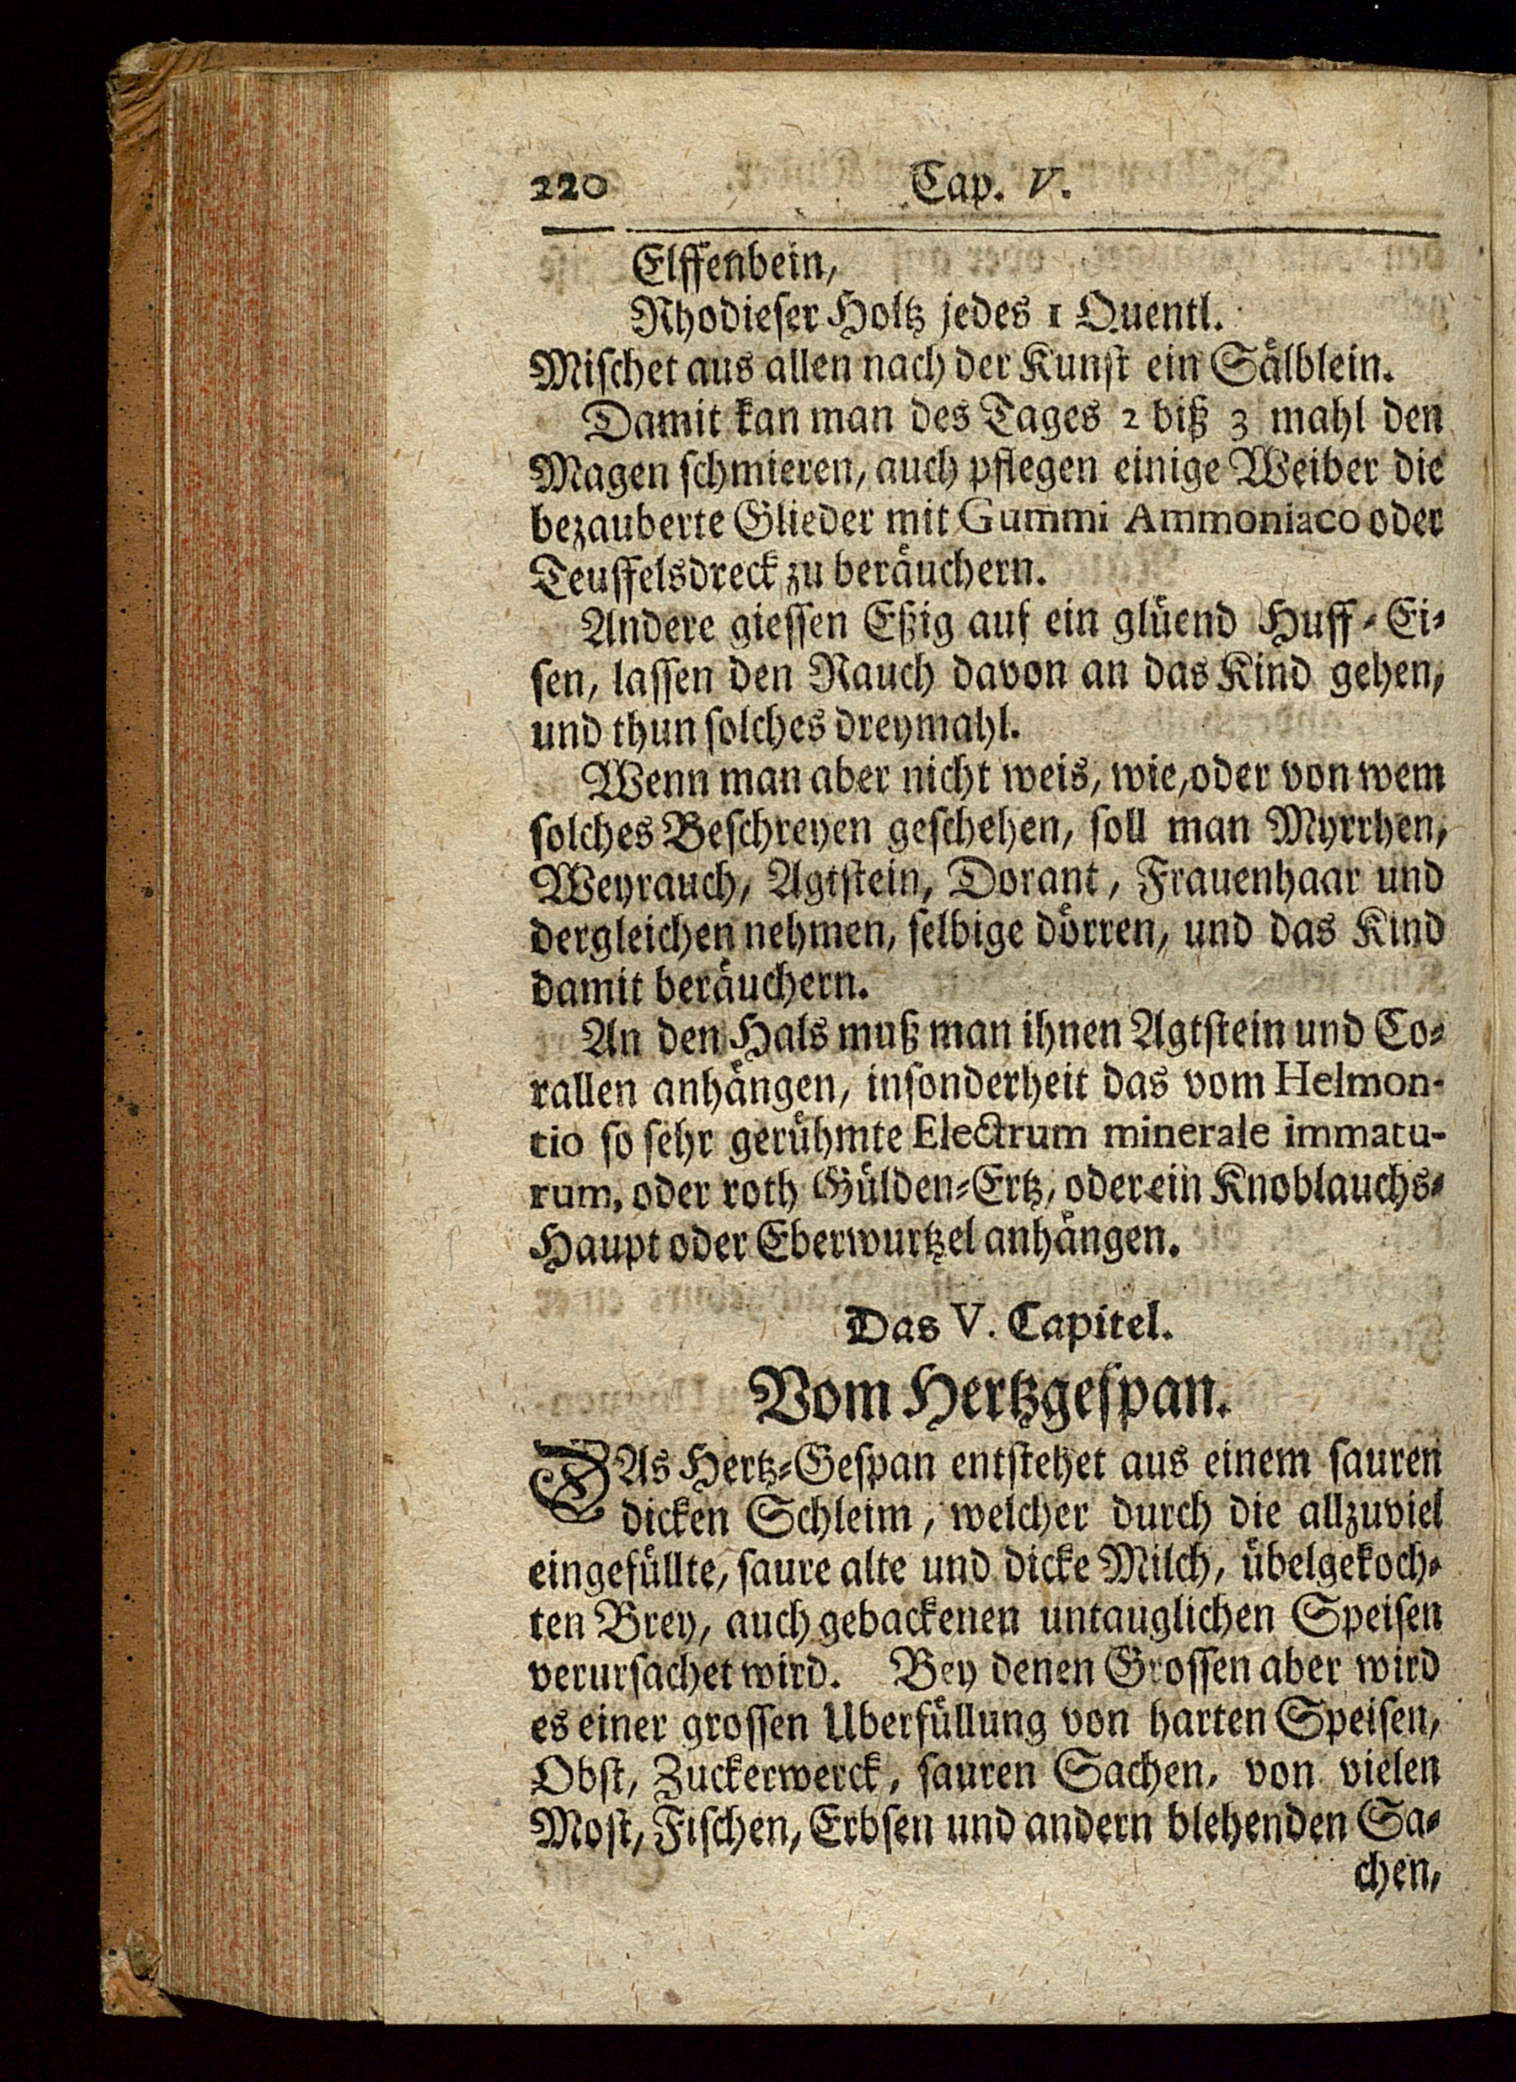 220 Cap. V.
Elffenbein,
Rhodieser Holtz jedes 1 Quentl.
Mischet aus allen nach der Kunst ein Sälblein.
Damit kan man des Tages 2 biß 3 mahl den
Magen schmieren, auch pflegen einige Weiber die
bezauberte Glieder mit Gummi Ammoniaco oder
Teuffelsdreck zu beräuchern.
Andere giessen Eßig auf ein glüend Huff-Ei-
sen, lassen den Rauch davon an das Kind gehen,
und thun solches dreymahl.
Wenn man aber nicht weis, wie, oder von wem
solches Beschreyen geschehen, soll man Myrrhen,
Weyrauch, Agtstein, Dorant, Frauenhaar und
dergleichen nehmen, selbige dörren, und das Kind
damit beräuchern.
An den Hals muß man ihnen Agtstein und Co-
rallen anhängen, insonderheit das vom Helmon-
tio so sehr gerühmte Electrum minerale immatu-
rum, oder roth Gülden-Ertz, oder ein Knoblauchs-
Haupt oder Eberwurtzel anhängen.
Das V. Capitel.
Vom Hertzgespan.
DAs Hertz-Gespan entstehet aus einem sauren
dicken Schleim, welcher durch die allzuviel
eingefüllte, saure alte und dicke Milch, übelgekoch-
ten Brey, auch gebackenen untauglichen Speisen
verursachet wird. Bey denen Grossen aber wird
es einer grossen Uberfüllung von harten Speisen,
Obst, Zuckerwerck, sauren Sachen, von vielen
Most, Fischen, Erbsen und andern blehenden Sa-
chen,